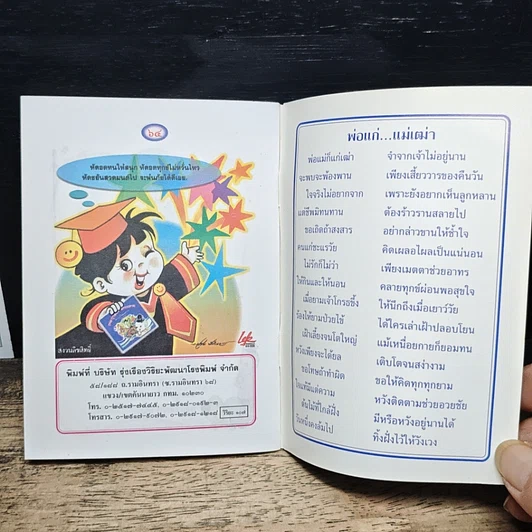 ๖๔
หัดอดทนให้สนุก หัดอดทุกข์ไม่หวั่นไหว
หัดขยันสวดมนต์ไป จะพ้นภัยได้ดีเอย.
สงวนลิขสิทธิ์
Life
พิมพ์ที่ บริษัท รุ่งเรืองวิริยะพัฒนาโรงพิมพ์ จำกัด
๕๘/๑๘๘ ถ.รามอินทรา (ซ.รามอินทรา ๖๘)
แขวง/เขตคันนายาว กทม. ๑๐๒๓๐
โทร. ๐-๒๕๑๗-๙๔๔๕, ๐-๒๕๑๘-๐๑๕๒-๓
โทรสาร. ๐-๒๕๑๗-๕๐๗๒, ๐-๒๕๑๘-๑๒๑๘
พ่อแก่...แม่เฒ่า
พ่อแม่ก็แก่เฒ่า จำจากเจ้าไม่อยู่นาน
จะพบจะพ้องพาน เพียงเสี้ยววารของคืนวัน
ใจจริงไม่อยากจาก เพราะยังอยากเห็นลูกหลาน
แต่ชีพมิทนทาน ต้องร้าวรานสลายไป
ขอเถิดถ้าสงสาร อย่ากล่าวขานให้ช้ำใจ
คนแก่ชะแรวัย คิดเผลอไผลเป็นแน่นอน
ไม่รักก็ไม่ว่า เพียงเมตตาช่วยอาทร
ให้กินและให้นอน คลายทุกข์ผ่อนพอสุขใจ
เมื่อยามเจ้าโกรธขึ้ง ให้นึกถึงเมื่อเยาว์วัย
ร้องไห้ยามป่วยไข้ ได้ใครเล่าเฝ้าปลอบโยน
เฝ้าเลี้ยงจนโตใหญ่ แม้เหนื่อยกายก็ยอมทน
หวังเพียงจะได้ยล เติบโตจนสง่างาม
ขอโทษถ้าทำผิด ขอให้คิดทุกทุกยาม
ใจแท้มีแต่ความ หวังติดตามช่วยอวยชัย
ต้นไม้ที่ใกล้ฝั่ง มีหรือหวังอยู่นานได้
วันหนึ่งคงล้มไป ทิ้งฝั่งไว้ให้วังเวง